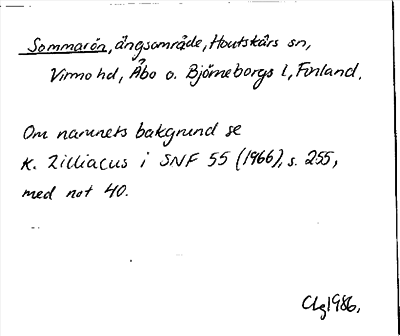 Sommarön, ängsområde, Houtskärs sn,
Virmo hd, Åbo o. Björneborgs l, Finland.
Om namnets bakgrund se
K. Zilliacus i SNF 55 (1966), s. 255,
med not 40.
Clg 1986.